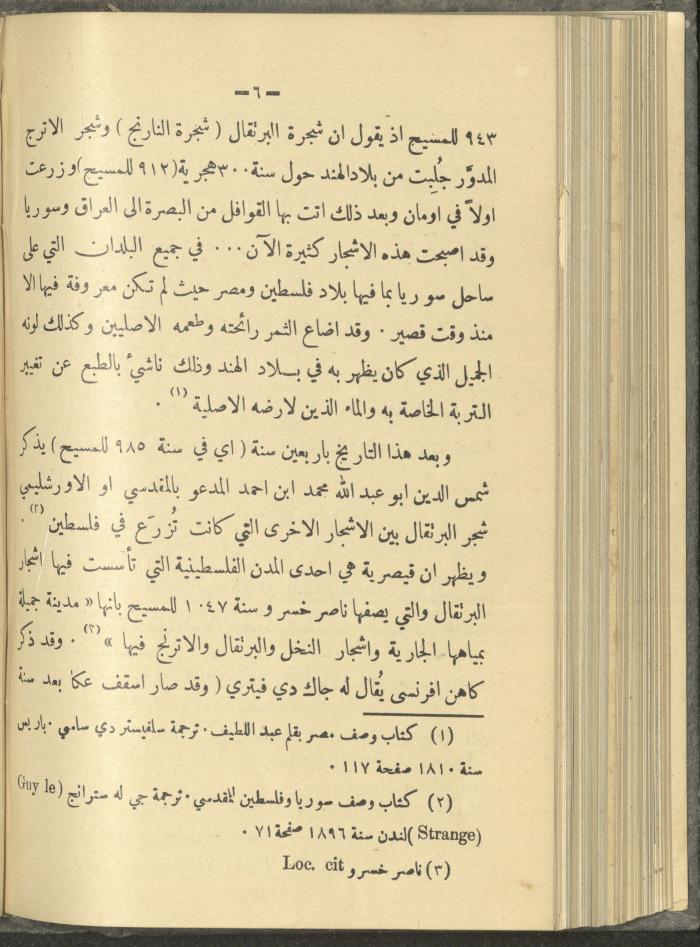 – ٦ –
٩٤٣ للمسيح اذ يقول ان شجرة البرتقال ( شجرة النارنج ) وشجر الاترج
المدوَّر جُلِبت من بلاد الهند حول سنة ٣٠٠ هجرية (٩١٢ للمسيح) وزرعت
اولاً في اومان وبعد ذلك اتت بها القوافل من البصرة الى العراق وسوريا
وقد اصبحت هذه الاشجار كثيرة الآن ... في جميع البلدان التي على
ساحل سوريا بما فيها بلاد فلسطين ومصر حيث لم تكن معروفة فيها الا
منذ وقت قصير . وقد اضاع الثمر رائحته وطعمه الاصليين وكذلك لونه
الجميل الذي كان يظهر به في بلاد الهند وذلك ناشئ بالطبع عن تغيير
التربة الخاصة به والماء الذين لارضه الاصلية (١) .
وبعد هذا التاريخ باربعين سنة ( اي في سنة ٩٨٥ للمسيح ) يذكر
شمس الدين ابو عبد الله محمد ابن احمد المدعو بالمقدسي او الاورشليمي
شجر البرتقال بين الاشجار الاخرى التي كانت تُزرَع في فلسطين (٢) .
ويظهر ان قيصرية هي احدى المدن الفلسطينية التي تأسست فيها اشجار
البرتقال والتي يصفها ناصر خسر و سنة ١٠٤٧ للمسيح بانها « مدينة جميلة
بمياهها الجارية واشجار النخل والبرتقال والاترنج فيها » (٣) . وقد ذكر
كاهن افرنسى يُقال له جاك دي فيتري ( وقد صار اسقف عكا بعد سنة
(١) كتاب وصف مصر بقلم عبد اللطيف . ترجمة سلفيستر دي ساسي . باريس
سنة ١٨١٠ صفحة ١١٧ .
(٢) كتاب وصف سوريا وفلسطين للمقدسي . ترجمة جي له سترانج (Guy le
Strange) لندن سنة ١٨٩٦ صفحة ٧١ .
(٣) ناصر خسرو Loc. cit